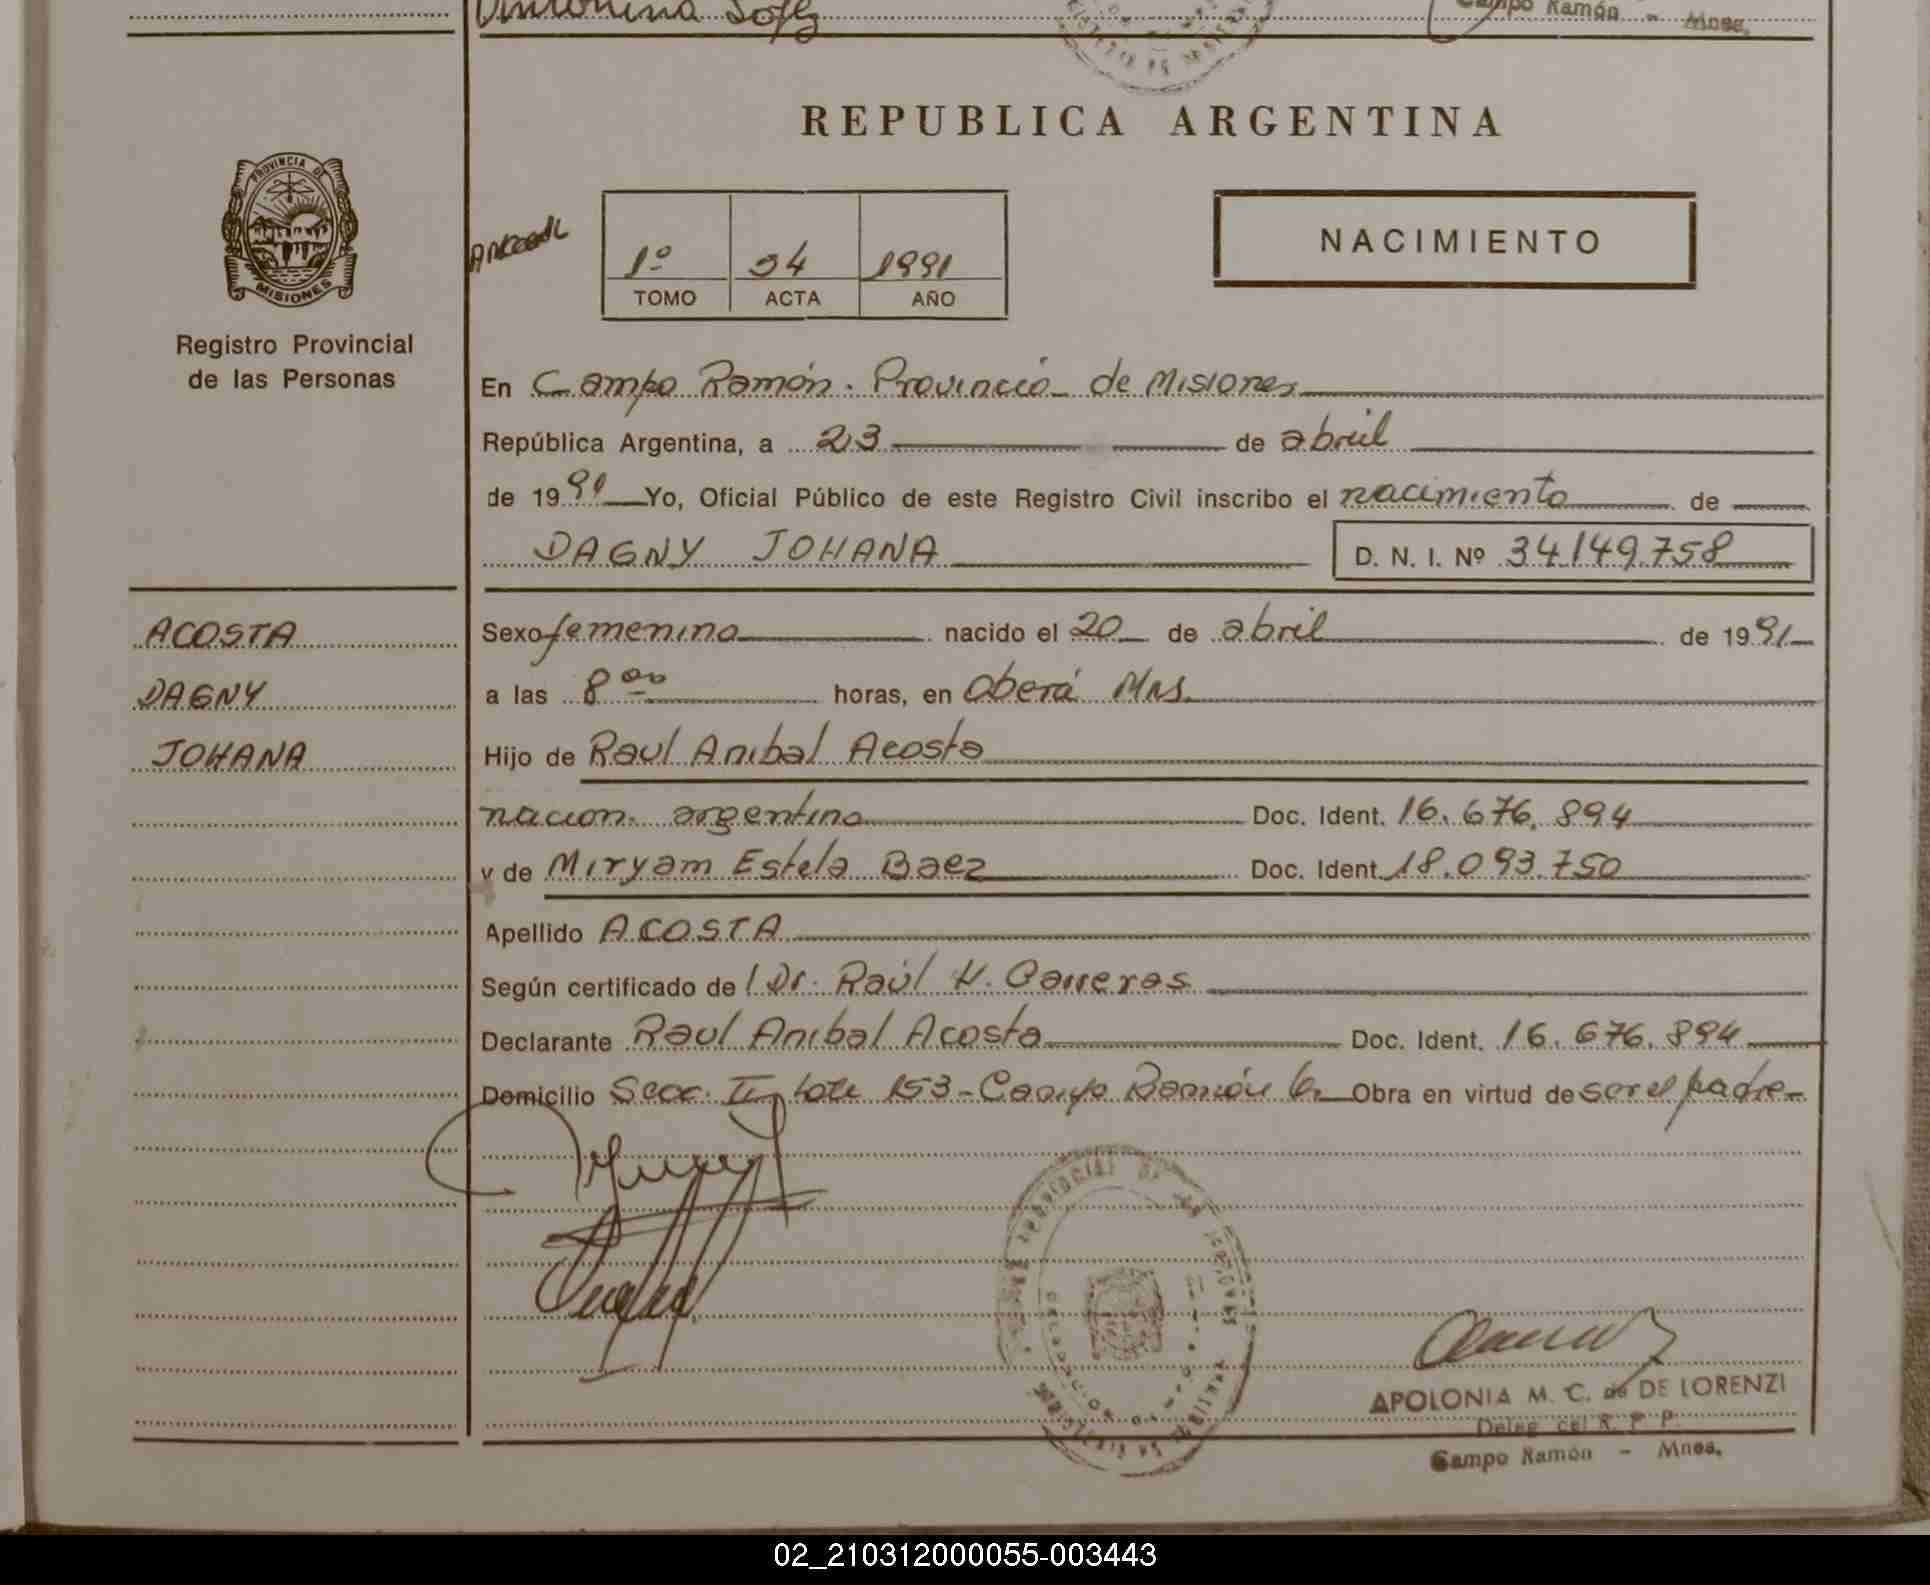 Antonina
Campo Ramón - Mnes.
REPUBLICA ARGENTINA
PROVINCIA DE
MISIONES
Registro Provincial
de las Personas
1º 34 1991
TOMO ACTA AÑO
NACIMIENTO
En Campo Ramón. Provincia de Misiones
República Argentina, a 23 de abril
de 1991 Yo, Oficial Público de este Registro Civil inscribo el nacimiento de
DAGNY JOHANA D. N. I. Nº 34.149.758
ACOSTA
DAGNY
JOHANA
Sexo femenino nacido el 20 de abril de 1991
a las 8 00 horas, en Oberá Mns.
Hijo de Raul Anibal Acosta
nacion. argentina Doc. Ident. 16.676.894
y de Miryam Estela Baez Doc. Ident. 18.093.750
Apellido ACOSTA
Según certificado de l Dr. Raúl H. Carreras
Declarante Raul Anibal Acosta Doc. Ident. 16.676.894
Domicilio Secc. II Lote 153 - Campo Ramón Obra en virtud de ser el padre
APOLONIA M. C. de DE LORENZI
Deleg. del R. P. P.
Campo Ramón - Mnes.
02_210312000055-003443